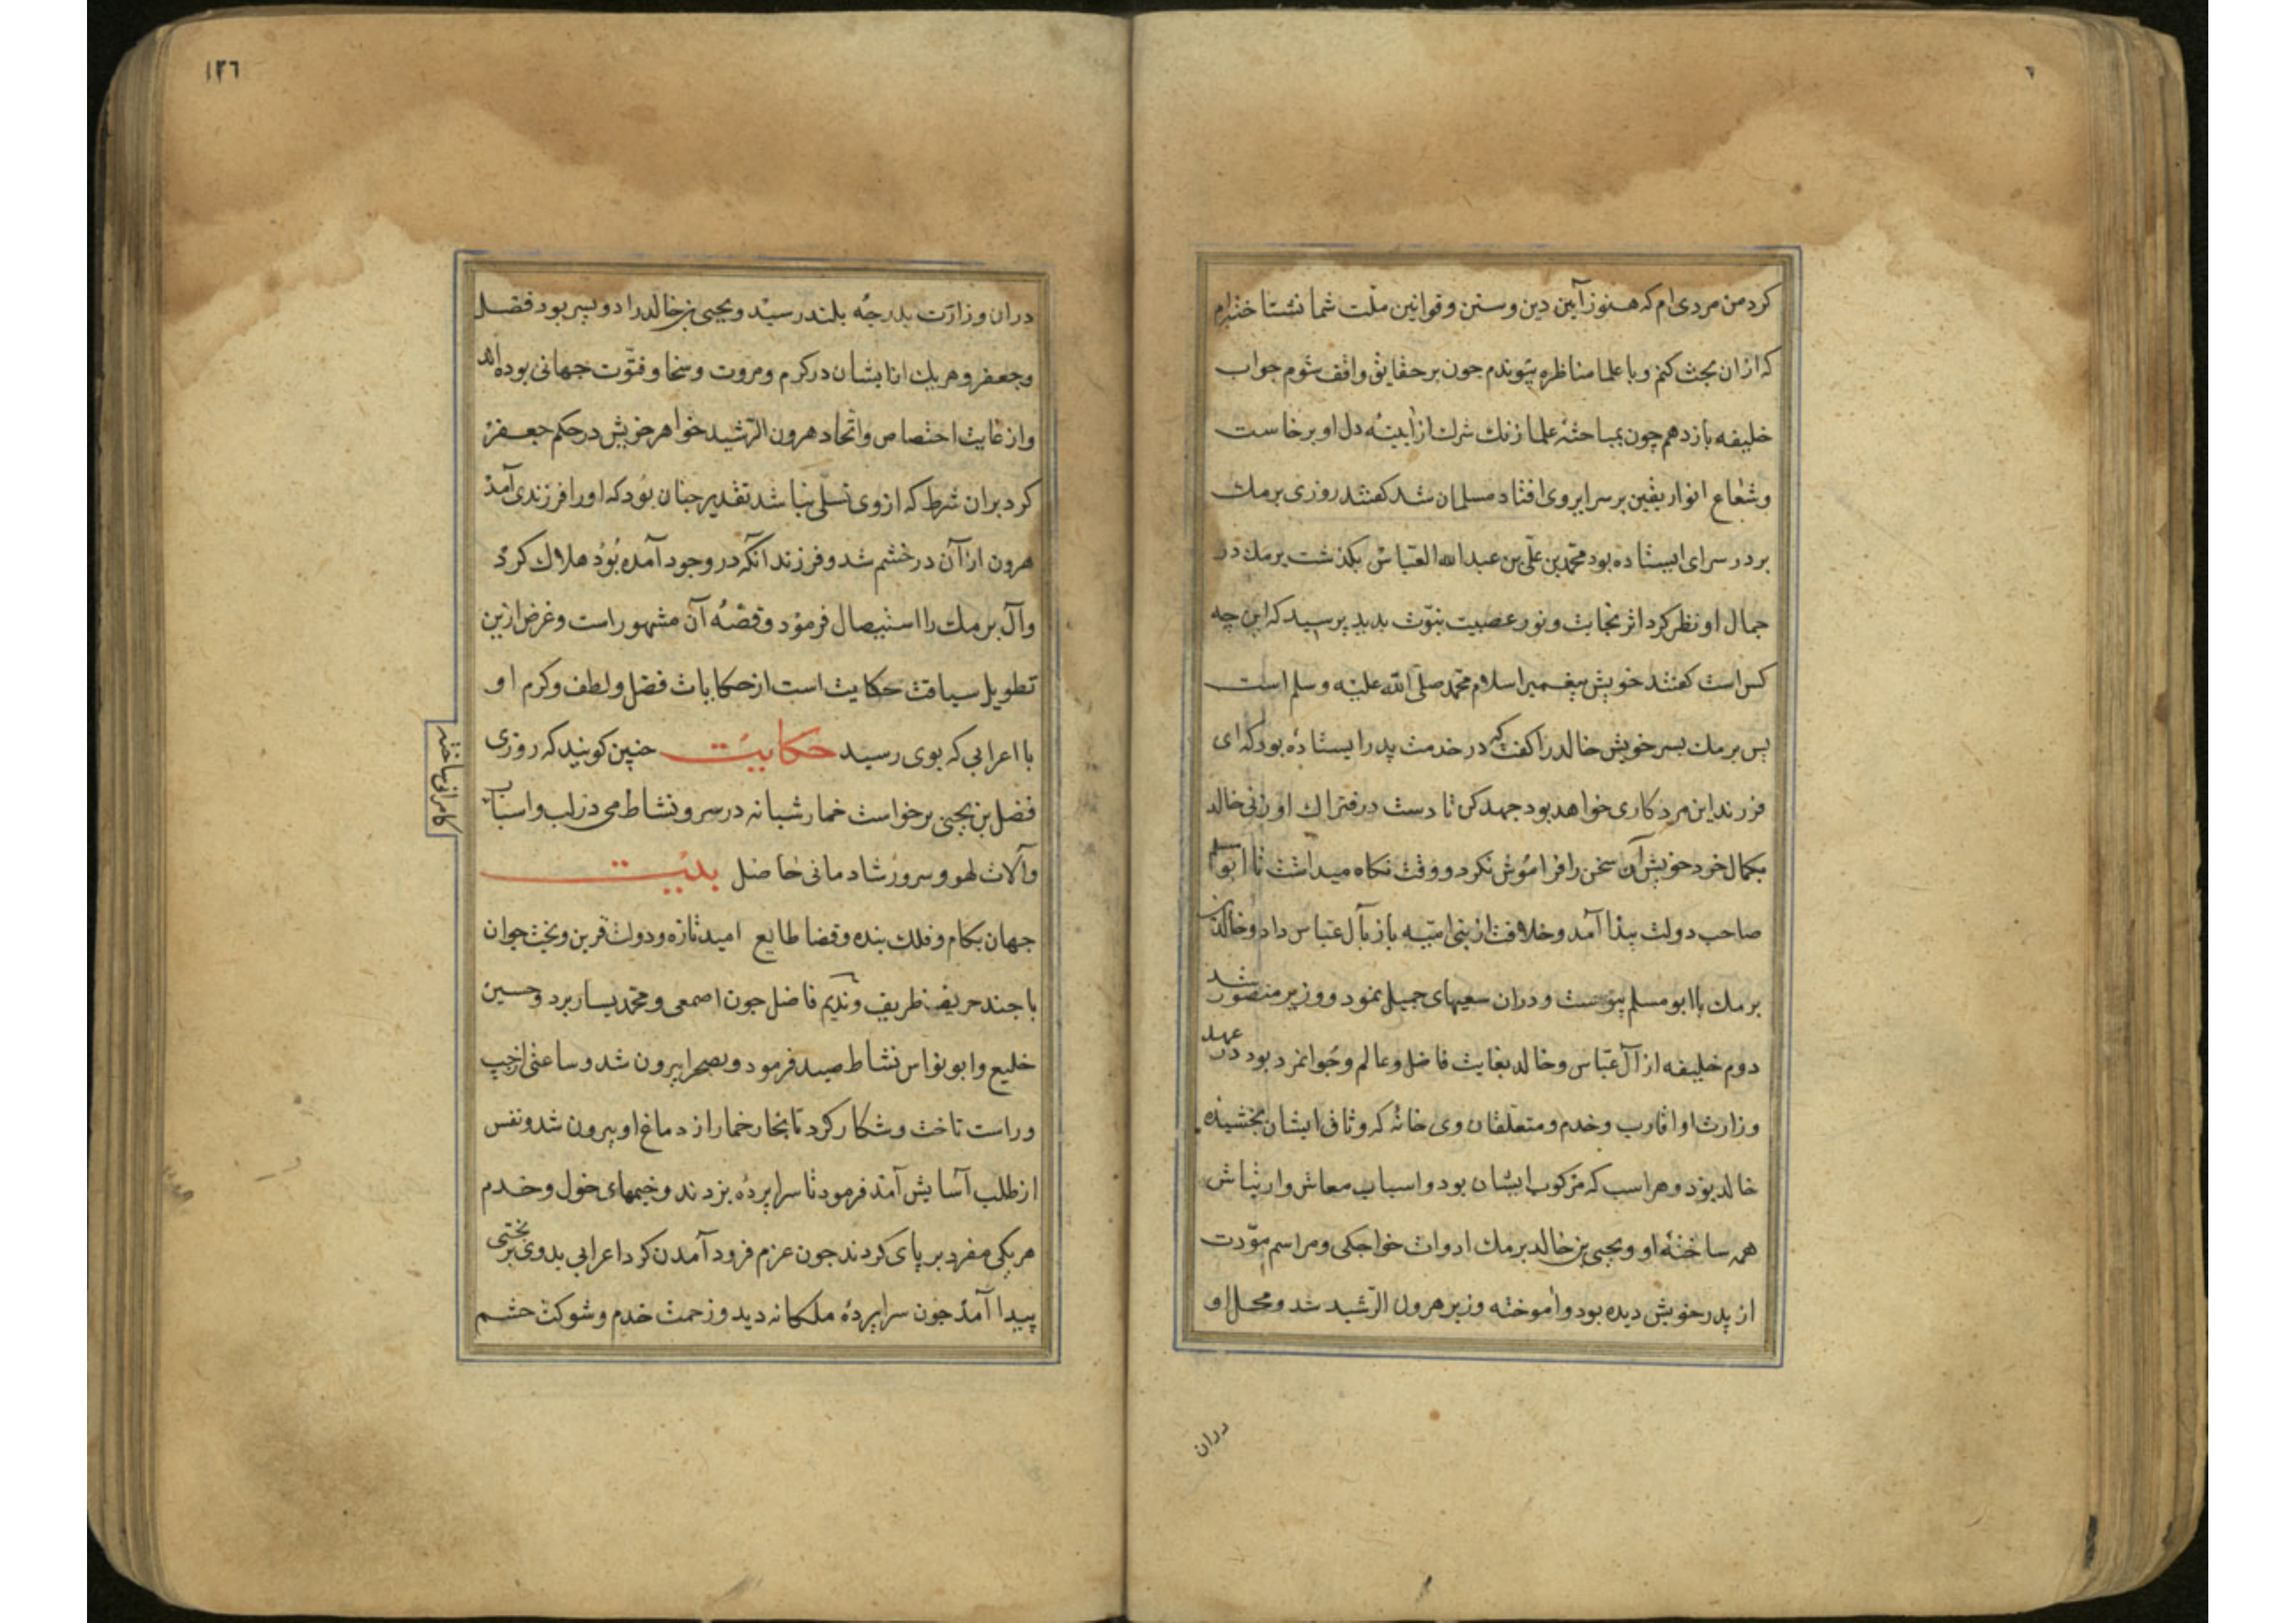 کرد من مردی ام که هنوز آیین دین و سنن و قوانین ملّت شما نشناخته‌ام
که ازان بحث کنم و با علما مناظره پیوندم جون بر حقایق واقف شوم جواب
خلیفه بازدهم چون بمباحثهٔ علما زنك شرك از آیینهٔ دل او برخاست
وشعاع انوار یقین بر سرایر وی افتاد مسلمان شد کفتند روزی برمك
بر در سرای ایستاده بود محمّد بن علی بن عبدالله العبّاس بکذشت برمك در
جمال او نظر کرد اثر نجابت و نور عصبیت نبوّت بدید پرسید که این چه
کس است کفتند خویش پیغمبر اسلام محمّد صلّی الله علیه وسلم است
پس برمك بسر خویش خالد را کفت که در خدمت پدر ایستاده بود که ای
فرزند این مرد کاری خواهد بود جهد کن تا دست در فتراك او زنی خالد
بکمال خرد خویش آن سخن را فراموش نکرد و وقت نکاه میداشت تا ابو مسلم
صاحب دولت پیذا آمد و خلافت از بنی امیّه باز بآل عبّاس داد وخالد بن
برمك با ابو مسلم پیوست و دران سعیهای جمیل نمود و وزیر منصور شد
دوم خلیفه از آل عبّاس وخالد بغایت فاضل و عالم و جوانمرد بود در عهد
وزارت او اقارب وخدم و متعلّقان وی خانهٔ که وثاق ایشان بخشیده
خالد بوذ و هر اسب که مرکوب ایشان بود و اسباب معاش و ارتیاش
همه ساختهٔ او و یحیی بن خالد برمك ادوات خواجکی و مراسم موّدت
از پدر خویش دیده بود و آموخته وزیر هرون الرّشید شد و محل او
دران
١٢٦
دران وزارت بدرجهٔ بلند رسید و یحیی بن خالد را دو پسر بود فضل
وجعفر و هر یك از ایشان در کرم و مروت و سخا و فتوّت جهانی بوده‌اند
و از غایت اختصاص و اتّحاد هرون الرّشید خواهر خویش در حکم جعفر
کرد بران شرط که ازوی نسلی نباشد تقدیر جنان بود که اورا فرزندی آمذ
هرون از آن در خشم شد و فرزند آنکه در وجود آمده بوذ هلاك کرد
و آل برمك را استیصال فرمود و قصّهٔ آن مشهور است و غرض ازین
تطویل سیاقت حکایت است از حکایات فضل و لطف و کرم او
با اعرابی که بوی رسید حکایت جنین کویند که روزی
فضل بن یحیی برخواست خمار شبانه در سر و نشاط می در لب و اسباب
کامرانی ساخته
و آلات لهو و سرور شادمانی حاصل بیت
جهان بکام و فلك بنده و قضا طایع امید تازه و دولت قرین و بخت جوان
با جند حریف ظریف و ندیم فاضل جون اصمعی و محمّد یسار برد و حسین
خلیع و ابو نواس نشاط صید فرمود و بصحرا بیرون شد و ساعتی از چپ
و راست تاخت و شکار کرد تا بخار خمار از دماغ او بیرون شد و نفس
از طلب آسایش آمذ فرمود تا سراپرده بزدند و خیمهای خول و خدم
هریکی مفرد بر پای کردند جون عزم فرود آمدن کرد اعرابی بدوی بر بختی
پیدا آمذ جون سراپردهٔ ملکانه دید و زحمت خدم و شوکت حشم